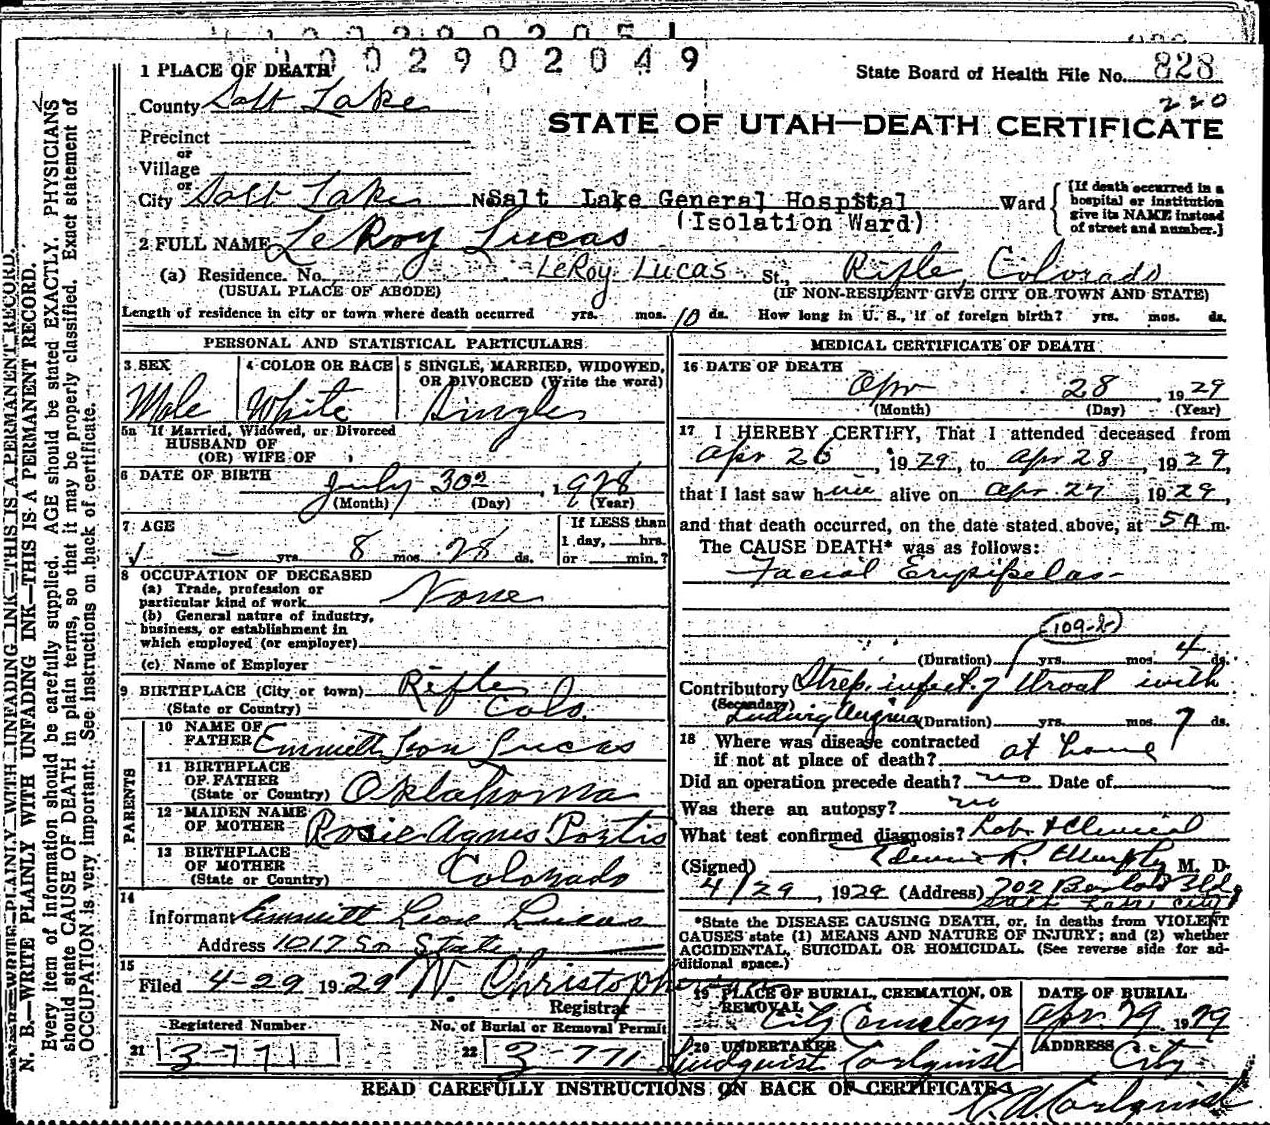 1002902049
State Board of Health File No. 828
220
STATE OF UTAH—DEATH CERTIFICATE
1 PLACE OF DEATH
County Salt Lake
Precinct
or
Village
or
City Salt Lake No Salt Lake General Hospital Ward
(Isolation Ward)
[If death occurred in a
hospital or institution
give its NAME instead
of street and number.]
2 FULL NAME LeRoy Lucas
(a) Residence. No. LeRoy Lucas St., Rifle, Colorado
(USUAL PLACE OF ABODE) (IF NON-RESIDENT GIVE CITY OR TOWN AND STATE)
Length of residence in city or town where death occurred yrs. mos. 10 ds. How long in U. S., if of foreign birth? yrs. mos. ds.
PERSONAL AND STATISTICAL PARTICULARS
3 SEX
Male
4 COLOR OR RACE
White
5 SINGLE, MARRIED, WIDOWED,
OR DIVORCED (Write the word)
Single
5a If Married, Widowed, or Divorced
HUSBAND OF
(OR) WIFE OF
6 DATE OF BIRTH July 30 1928
(Month) (Day) (Year)
7 AGE
— yrs. 8 mos. 28 ds.
If LESS than
1 day, hrs.
or min.?
8 OCCUPATION OF DECEASED
(a) Trade, profession or
particular kind of work None
(b) General nature of industry,
business, or establishment in
which employed (or employer)
(c) Name of Employer
9 BIRTHPLACE (City or town) Rifle
(State or Country) Colo.
PARENTS
10 NAME OF
FATHER Emmett Leon Lucas
11 BIRTHPLACE
OF FATHER
(State or Country) Oklahoma
12 MAIDEN NAME
OF MOTHER Rosie Agnes Portis
13 BIRTHPLACE
OF MOTHER
(State or Country) Colorado
14
Informant Emmitt Leon Lucas
Address 1017 So State
15
Filed 4-29 1929 W. Christopherson
Registrar
Registered Number
21 3-771
No. of Burial or Removal Permit
22 3-771
MEDICAL CERTIFICATE OF DEATH
16 DATE OF DEATH
Apr 28 1929
(Month) (Day) (Year)
17 I HEREBY CERTIFY, That I attended deceased from
Apr 26, 1929, to Apr 28, 1929,
that I last saw him alive on Apr. 27, 1929,
and that death occurred, on the date stated above, at 5A m.
The CAUSE DEATH* was as follows:
Facial Erysipelas
109-b
(Duration) yrs. mos. 4 ds.
Contributory Strep. infect. of throat with
(Secondary)
Ludwig Angina (Duration) yrs. mos. 7 ds.
18 Where was disease contracted
if not at place of death? at home
Did an operation precede death? no Date of
Was there an autopsy? no
What test confirmed diagnosis? Lab. & Clinical
(Signed) R. Murphy M. D.
4/29, 1929 (Address) 702 Boston Bldg
Salt Lake City
*State the DISEASE CAUSING DEATH, or, in deaths from VIOLENT
CAUSES state (1) MEANS AND NATURE OF INJURY; and (2) whether
ACCIDENTAL, SUICIDAL OR HOMICIDAL. (See reverse side for ad-
ditional space.)
19 PLACE OF BURIAL, CREMATION, OR
REMOVAL
City Cemetery
DATE OF BURIAL
Apr. 29 1929
20 UNDERTAKER
Lindquist Carlquist
ADDRESS
City
READ CAREFULLY INSTRUCTIONS ON BACK OF CERTIFICATE
N. A. Carlquist
N. B.—WRITE PLAINLY WITH UNFADING INK—THIS IS A PERMANENT RECORD.
Every item of information should be carefully supplied. AGE should be stated EXACTLY. PHYSICIANS
should state CAUSE OF DEATH in plain terms, so that it may be properly classified. Exact statement of
OCCUPATION is very important. See instructions on back of certificate.